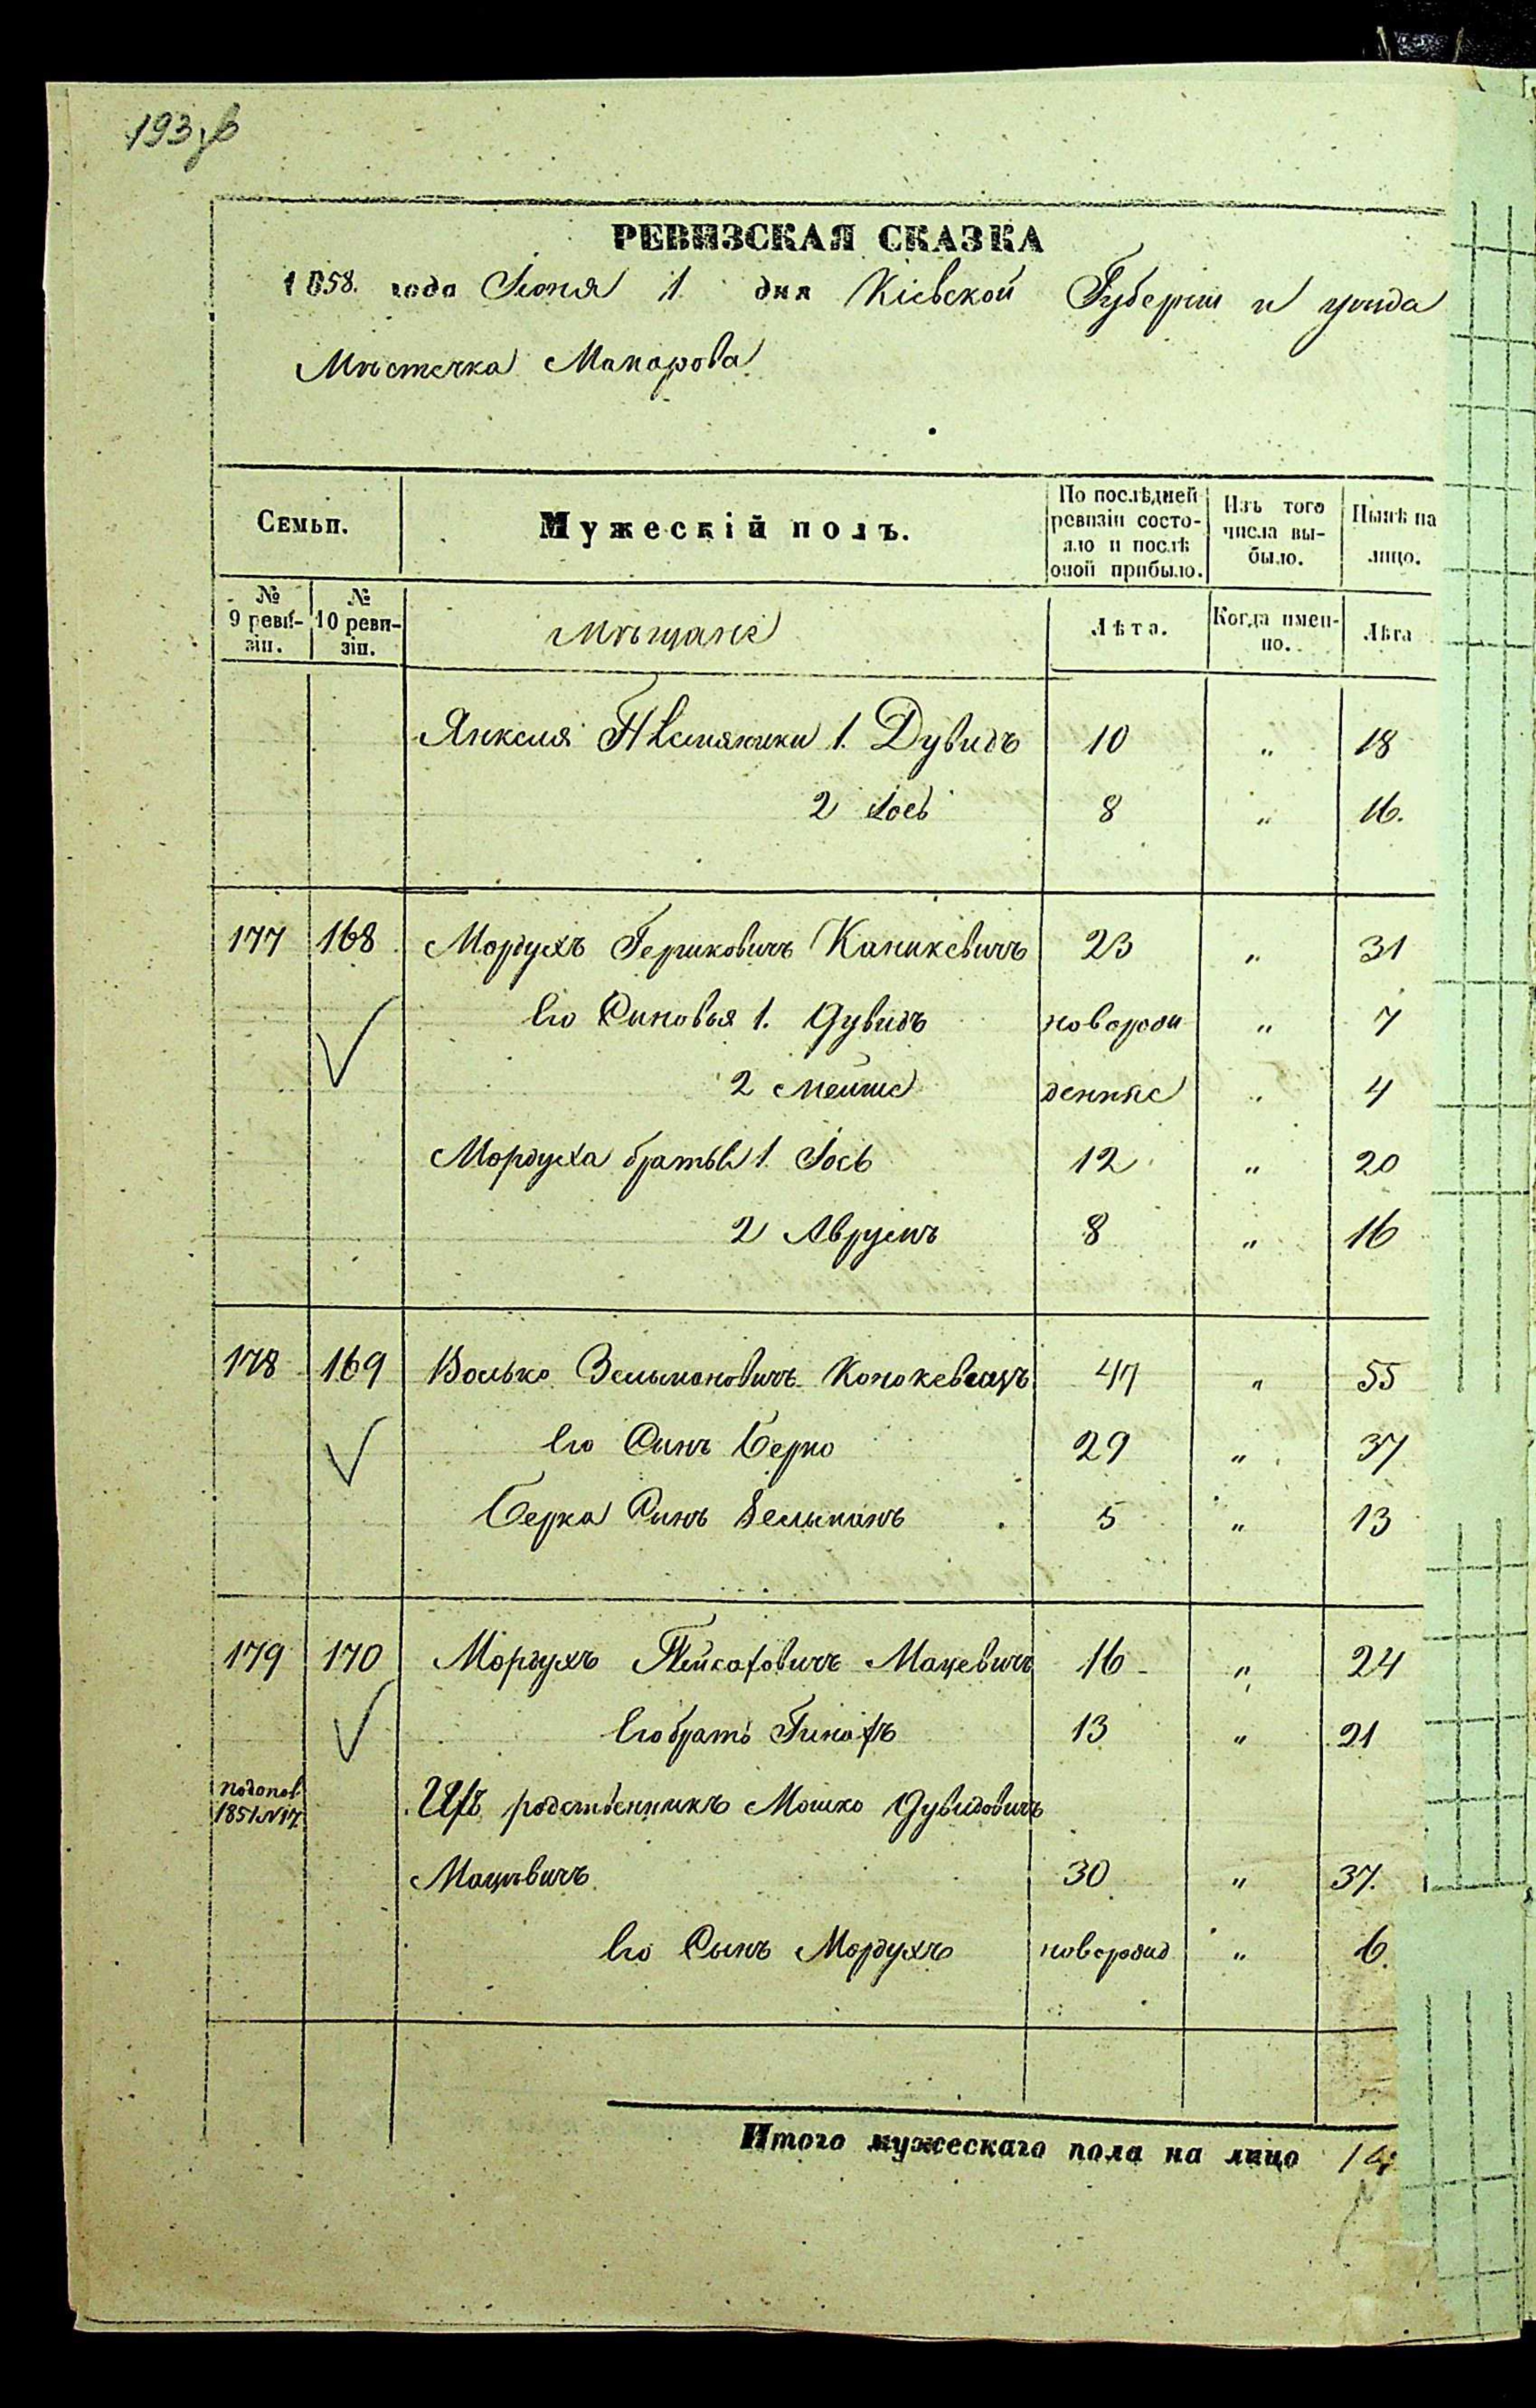 193 зв
РЕВИЗСКАЯ СКАЗКА
1858. года Іюня 1 дня Кіевской Губерніи и уѣзда
Мѣстечка Макарова
Семьи. Мужескій полъ. По послѣдней ревизіи состояло и послѣ оной прибыло. Изъ того числа выбыло. Нынѣ на лицо.
№ 9 ревизіи. № 10 ревизіи. Мѣщане Лѣта. Когда именно. Лѣта
Янкеля Племянники 1. Дувидъ 10 „ 18
2 Іось 8 „ 16.
177 168 Мордухъ Гершковичъ Каникевичъ 23 „ 31
Его Сыновья 1. Дувидъ новорож „ 7
2 Мейше денные „ 4
Мордуха братья 1. Іось 12 „ 20
2 Аврумъ 8 „ 16
178 169 Волько Зельмановичъ Конокевичъ 47 „ 55
Его Сынъ Берко 29 „ 37
Берка Сынъ Зельманъ 5 „ 13
179 170 Мордухъ Пейсаховичъ Мацевичъ 16 „ 24
Его братъ Гинохъ 13 „ 21
по допол. 1851 № 17 Ихъ родственникъ Мошко Дувидовичъ
Мацѣвичъ 30 „ 37.
Его Сынъ Мордухъ новорожд „ 6.
Итого мужескаго пола на лицо 14